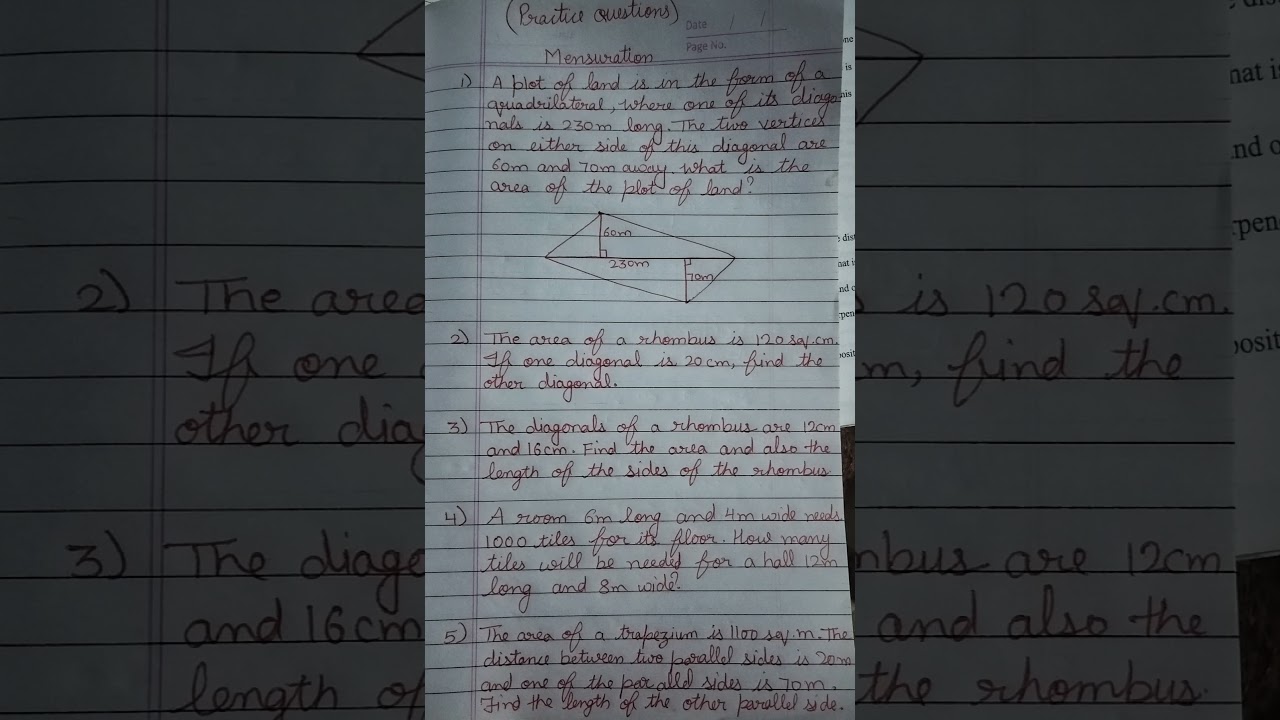 (Practice questions)
Date / /
Page No.
Mensuration
1) A plot of land is in the form of a
quadrilateral, where one of its diago
nals is 230m long. The two vertices
on either side of this diagonal are
60m and 70m away. What is the
area of the plot of land?
60m
230m
70m
2) The area of a rhombus is 120 sq.cm.
If one diagonal is 20cm, find the
other diagonal.
3) The diagonals of a rhombus are 12cm
and 16cm. Find the area and also the
length of the sides of the rhombus
4) A room 6m long and 4m wide needs
1000 tiles for its floor. How many
tiles will be needed for a hall 12m
long and 8m wide?
5) The area of a trapezium is 1100 sq.m. The
distance between two parallel sides is 20m
and one of the parallel sides is 70m.
Find the length of the other parallel side.
2) The area
If one
other diag
3) The diago
and 16cm
length of
is 120 sq.cm.
m, find the
mbus are 12cm
and also the
the rhombus.